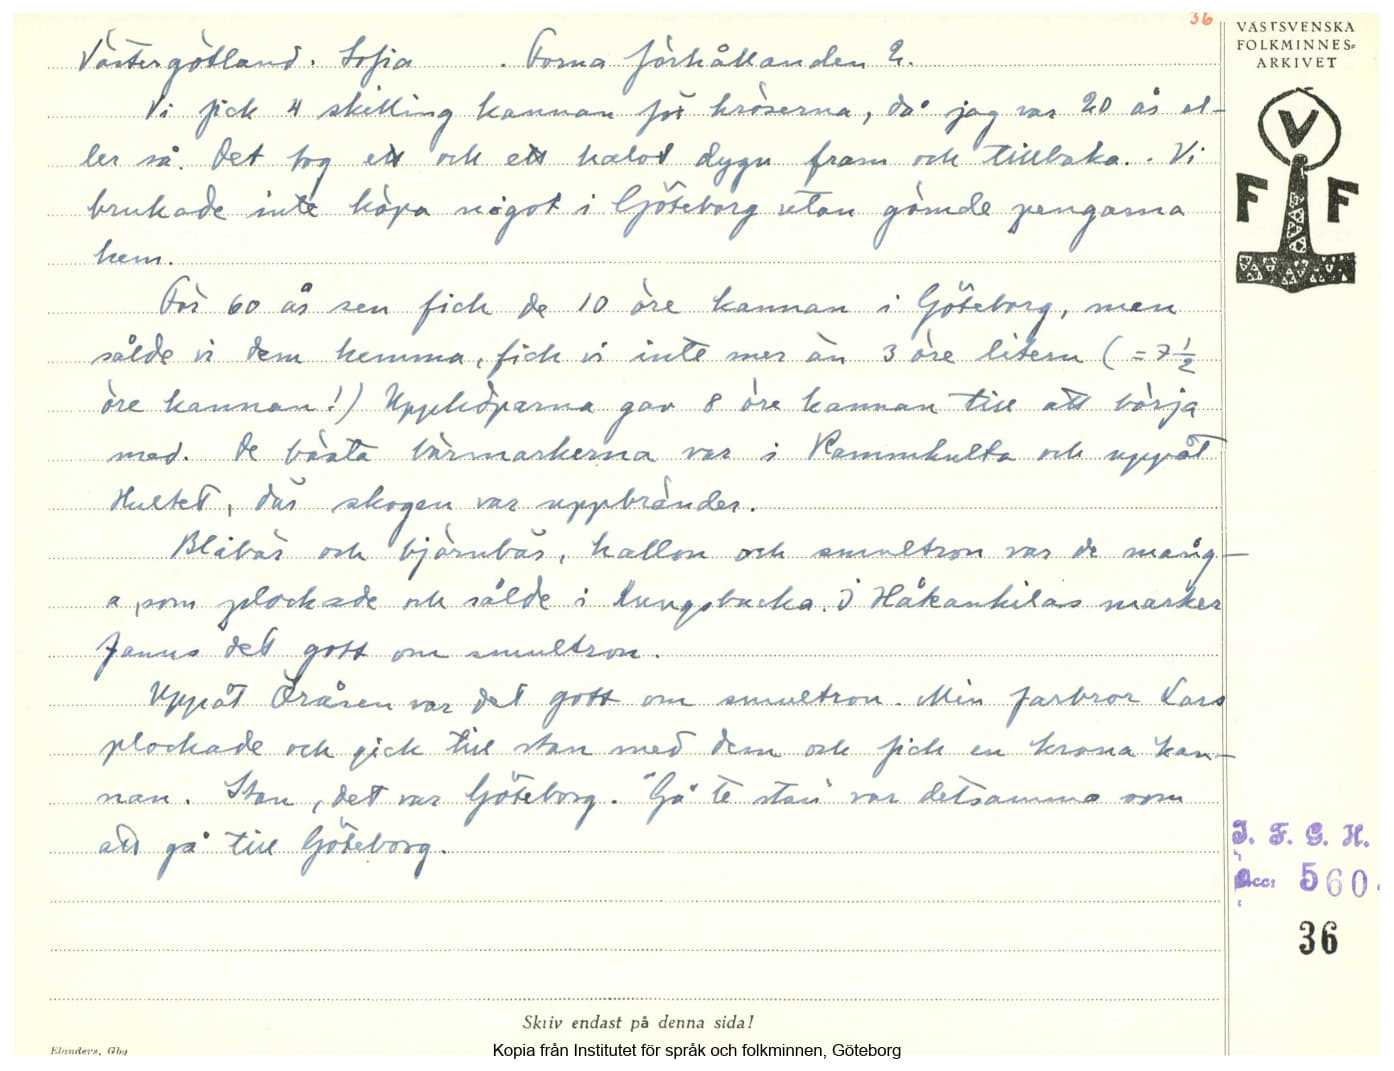 36
VÄSTSVENSKA
FOLKMINNES-
ARKIVET
V
F F
Västergötland. Sofia . Forna förhållanden 2.
Vi fick 4 skilling kannan för kröserna, då jag var 20 år el-
ler så. Det tog ett och ett halvt dygn fram och tillbaka. Vi
brukade inte köpa något i Göteborg utan gömde pengarna
hem.
För 60 år sen fick de 10 öre kannan i Göteborg, men
sålde vi dem hemma, fick vi inte mer än 3 öre litern ( = 7 1/2
öre kannan!) Uppköparna gav 8 öre kannan till att börja
med. De bästa bärmarkerna var i Rammhulta och uppåt
Hultet, där skogen var uppbränder.
Blåbär och björnbär, hallon och smultron var de mång-
a, som plockade och sålde i Kungsbacka. I Håkankilas marker
fanns det gott om smultron.
Uppåt Öråsen var det gott om smultron. Min farbror Lars
plockade och gick till stan med dem och fick en krona kan-
nan. Stan, det var Göteborg. "Gå te stan" var detsamma som
att gå till Göteborg.
I. F. G. H.
Acc: 560
36
Skriv endast på denna sida!
Elanders, Gbg
Kopia från Institutet för språk och folkminnen, Göteborg